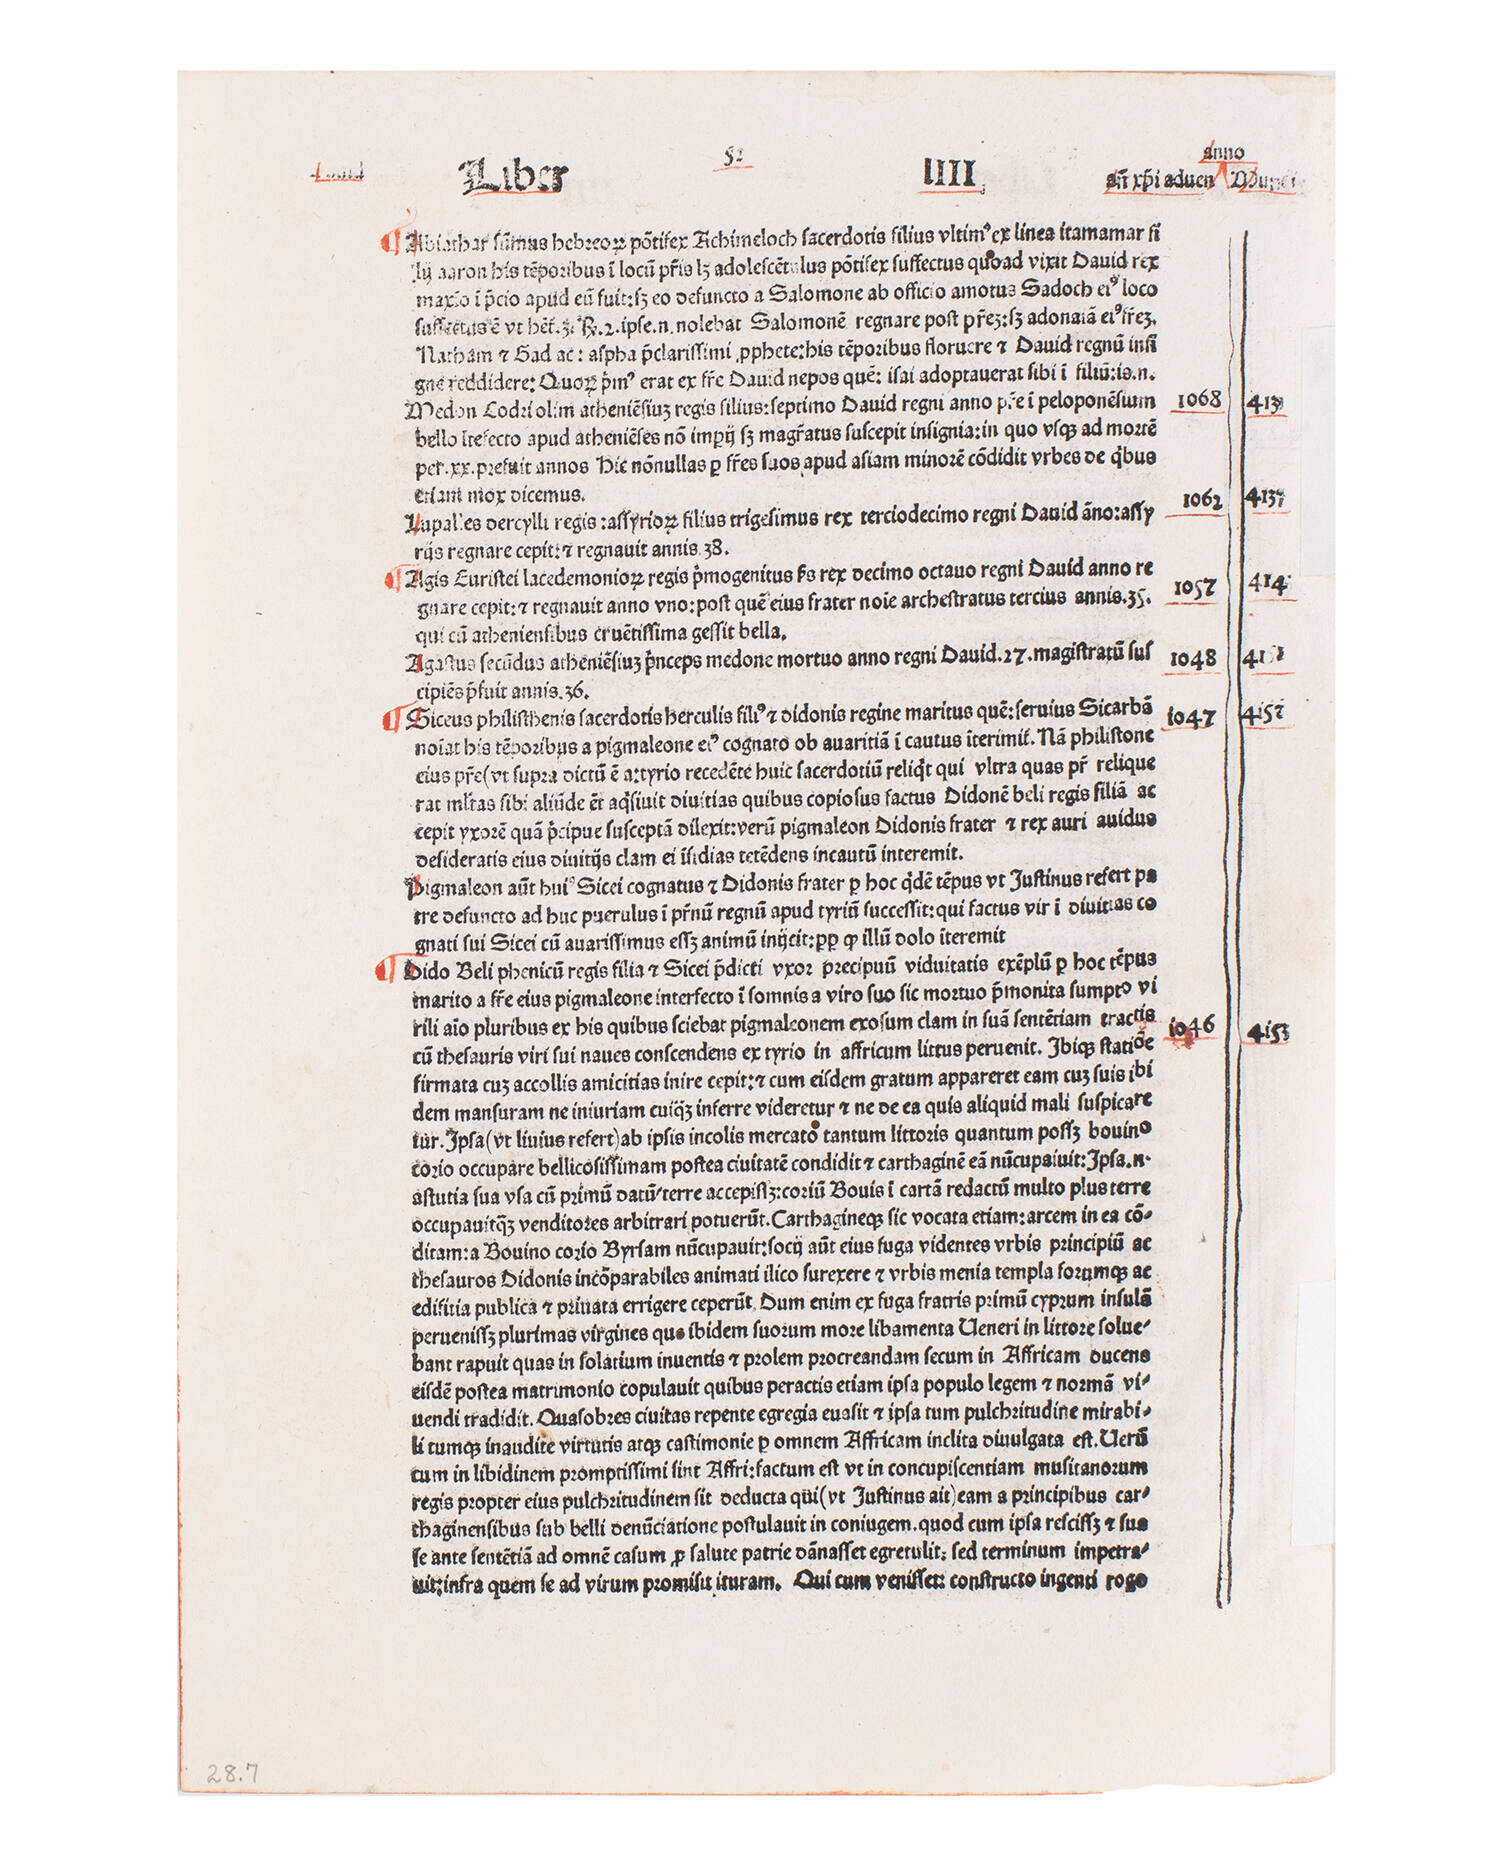 Liber 52 IIII
anno
añ xp̄i aduen Mundi
Abiathar sūmus hebreoꝝ põtifex Achimeloch sacerdotis filius vltimꝰ ex linea itamamar fi
lij aaron his tẽporibus ĩ locũ pr̃is lꝫ adolescẽtulus põtifex suffectus quoad vixit Dauid rex
maxĩo ĩ p̃cio apud eũ fuit:sꝫ eo defuncto a Salomone ab officio amotus Sadoch eiꝰ loco
suffectus ẽ vt hẽt.3.Rꝭ.2.ipse.n.nolebat Salomonẽ regnare post pr̃eꝫ:sꝫ adonaiã eiꝰ fr̃eꝫ.
Natham ⁊ Gad ac: aspha p̃clarissimi ꝓphete:his tẽporibus floruere ⁊ Dauid regnũ insi
gne reddidere: Quoꝝ p̃mꝰ erat ex fr̃e Dauid nepos quẽ: isai adoptauerat sibi ĩ filiũ:is.n.
Medon Codri olim atheniẽsiuꝫ regis filius:septimo Dauid regni anno pr̃e ĩ peloponẽsium 1068
bello ĩtefecto apud atheniẽses nõ imꝑij sꝫ magr̃atus suscepit insignia:in quo vsqꝫ ad mortẽ
per.xx.prefuit annos Hic nõnullas ꝑ fr̃es suos apud asiam minorẽ cõdidit vrbes de q̃bus
etiam mox dicemus. 1062 4137
Lupales dercylli regis :assyrioꝝ filius trigesimus rex terciodecimo regni Dauid ãno:assy
rijs regnare cepit:⁊ regnauit annis.38.
Agis Euristei lacedemonioꝝ regis p̃mogenitus p̃s rex decimo octauo regni Dauid anno re 1057 414
gnare cepit:⁊ regnauit anno vno:post quẽ eius frater noĩe archestratus tercius annis.35.
qui cũ atheniensibus cruẽtissima gessit bella.
Agastus secũdus atheniẽsiuꝫ p̃nceps medone mortuo anno regni Dauid.27.magistratũ sus 1048
cipiẽs p̃fuit annis.36.
Siceus philisthenis sacerdotis herculis filiꝰ ⁊ didonis regine maritus quẽ:seruius Sicarbã 1047 4152
noĩat his tẽporibus a pigmaleone eiꝰ cognato ob auaritiã ĩ cautus ĩterimit̃. Nã philistone
eius pr̃e(vt supra dictũ ẽ a:tyrio recedẽte huic sacerdotiũ reliq̃t qui vltra quas pr̃ relique
rat ml̃tas sibi aliũde ẽt aq̃siuit diuitias quibus copiosus factus Didonẽ beli regis filiã ac
cepit yxorẽ quã p̃cipue susceptã dilexit:verũ pigmaleon Didonis frater ⁊ rex auri auidus
desideratis eius diuitijs clam ei ĩsidias tetẽdens incautũ interemit.
Pigmaleon aũt huiꝰ Sicei cognatus ⁊ Didonis frater ꝑ hoc q̃dẽ tẽpus vt Justinus refert pa
tre defuncto ad huc puerulus ĩ pr̃nũ regnũ apud tyriũ successit:qui factus vir ĩ diuitias co
gnati sui Sicei cũ auarissimus essꝫ animũ inijcit:ꝓp ꝙ illũ dolo ĩteremit
Dido Beli phenicũ regis filia ⁊ Sicei p̃dicti vxor precipuũ viduitatis exẽplũ ꝑ hoc tẽpus
marito a fr̃e eius pigmaleone interfecto ĩ somnis a viro suo sic mortuo p̃monita sumpto vi
rili aĩo pluribus ex his quibus sciebat pigmaleonem exosum clam in suã sentẽtiam tractis 1046 4153
cũ thesauris viri sui naues conscendens ex tyrio in affricum littus peruenit. Ibiqꝫ statiõe
firmata cuꝫ accollis amicitias inire cepit:⁊ cum eisdem gratum appareret eam cuꝫ suis ibi
dem mansuram ne iniuriam cuiq̃ꝫ inferre videretur ⁊ ne de ea quis aliquid mali suspicare
tur. Ipsa(vt liuius refert)ab ipsis incolis mercato tantum littoris quantum possꝫ bouino
corio occupare bellicosissimam postea ciuitatẽ condidit ⁊ carthaginẽ eã nũcupauit:Ipsa.n.
astutia sua vsa cũ primũ datũ terre accepisꝫ:coriũ Bouis ĩ cartã redactũ multo plus terre
occupauitq̃ꝫ venditores arbitrari potuerũt. Carthagineqꝫ sic vocata etiam:arcem in ea cõ-
ditam:a Bouino corio Byrsam nũcupauit:socij aũt eius fuga videntes vrbis principiũ ac
thesauros Didonis incõparabiles animati ilico surexere ⁊ vrbis menia templa forumqꝫ ac
edifitia publica ⁊ priuata errigere ceperũt. Dum enim ex fuga fratris primũ cyprum insulã
peruenissꝫ plurimas virgines que ibidem suorum more libamenta Ueneri in littore solue-
bant rapuit quas in solatium inuentis ⁊ prolem procreandam secum in Affricam ducens
eisdẽ postea matrimonio copulauit quibus peractis etiam ipsa populo legem ⁊ normã vi-
uendi tradidit. Quasobres ciuitas repente egregia euasit ⁊ ipsa tum pulchritudine mirabi-
li tumqꝫ inaudite virtutis atqꝫ castimonie ꝑ omnem Affricam inclita diuulgata est. Uerũ
cum in libidinem promptissimi sint Affri:factum est vt in concupiscentiam musitanorum
regis propter eius pulchritudinem sit deducta qũi(vt Justinus ait)eam a principibus car-
thaginensibus sub belli denũciatione postulauit in coniugem.quod cum ipsa rescissꝫ ⁊ sua
se ante sentẽtiã ad omnẽ casum ꝓ salute patrie dãnasset egretulit: sed terminum impetra-
uit:infra quem se ad virum promisit ituram. Qui cum venisset: constructo ingenti rogo
28.7